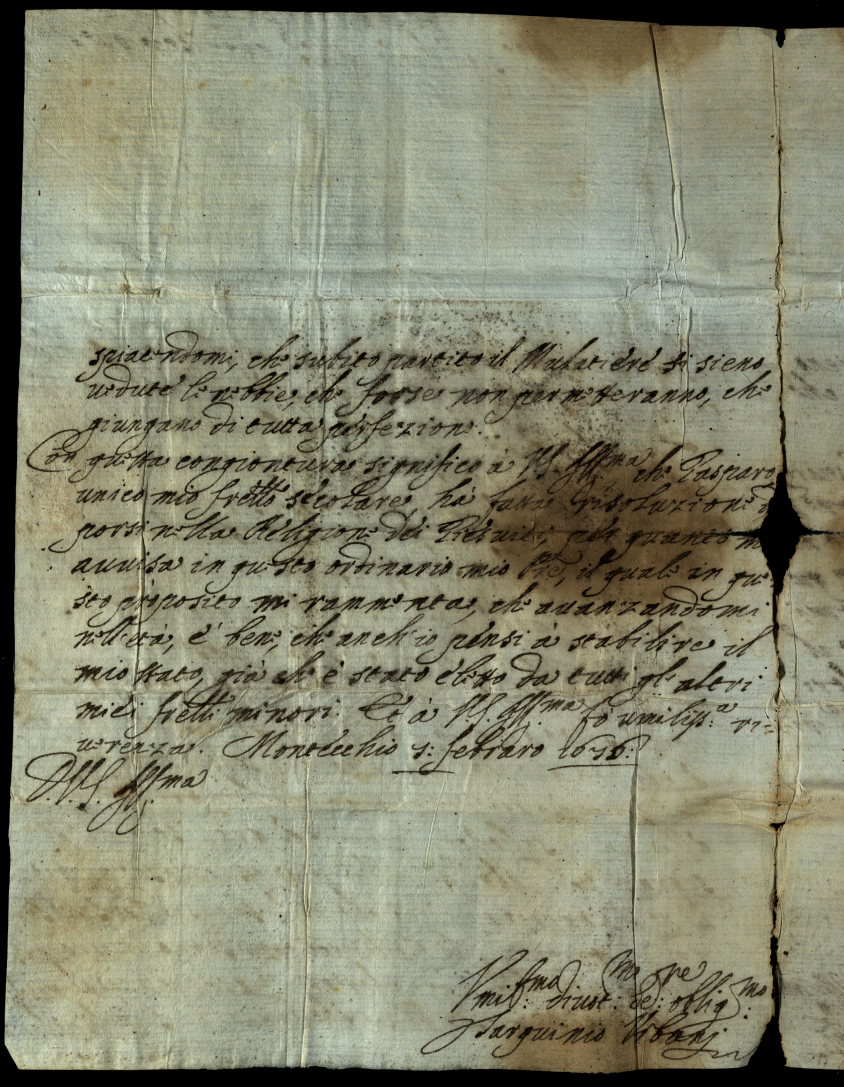 spiacendomi, che subito partito il Mulatiére si sieno
uedute le nebbie, che forse non permetteranno, che
giungano di tutta perfezione.
Con questa congiontura significo à V.S. Ill.ma che Gasparo
unico mio frello secolare, ha fatta risoluzione d
porsi nella Religione dei Giesuiti, per quanto m
auuisa in questo ordinario mio Pre, il quale in que
sto proposito mi rammenta, che auanzandomi
nell'età, è bene, che anch'io pensi à stabilire il
mio stato, già che è stato eletto da tutti gl'altri
miei frelli minori. Et à V.S. Ill.ma fo umiliss.a ri=
uerenza. Montecchio 5: febraro 1656:
D. V.S. Ill.ma
Umil.mo diuot.mo ser.re oblig.mo
Tarquinio